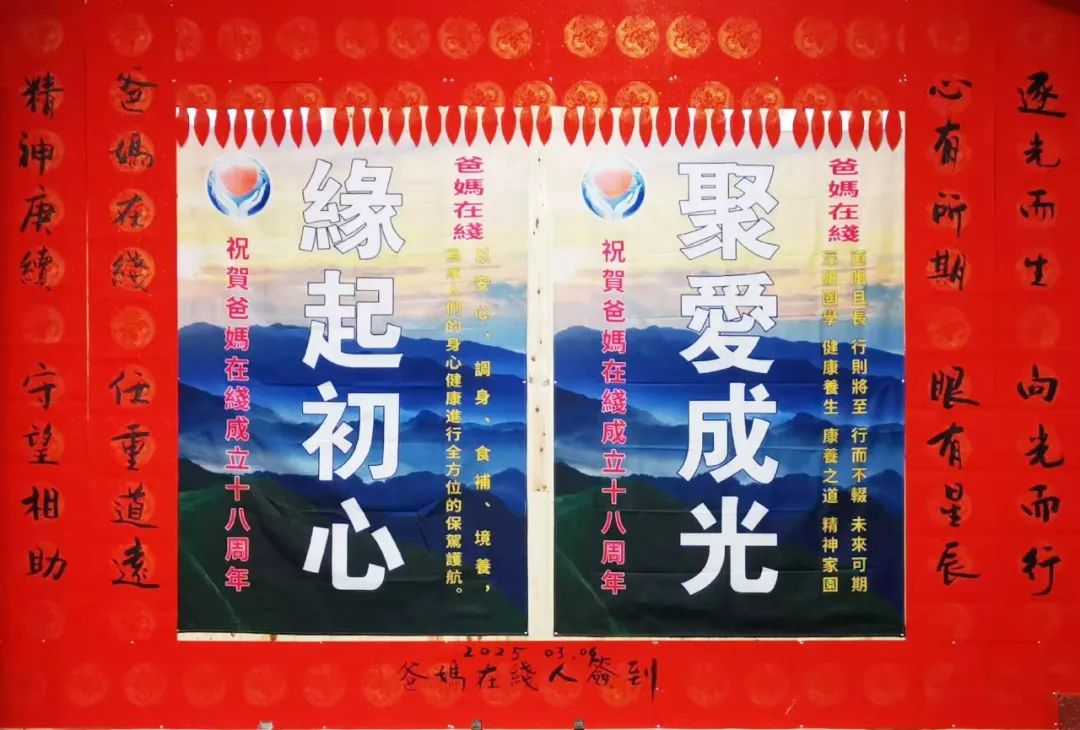 逐光而生 向光而行
心有所期 眼有星辰
爸媽在綫
道阻且長 行則將至 行而不輟 未來可期
深研國學 健康養生 康養之道 精神家園
聚愛成光
祝賀爸媽在綫成立十八周年
爸媽在綫
以安心、調身、食補、境養，
為家人們的身心健康進行全方位的保駕護航。
緣起初心
祝賀爸媽在綫成立十八周年
爸媽在綫 任重道遠
精神庚續 守望相助
2025
爸媽在綫人簽到